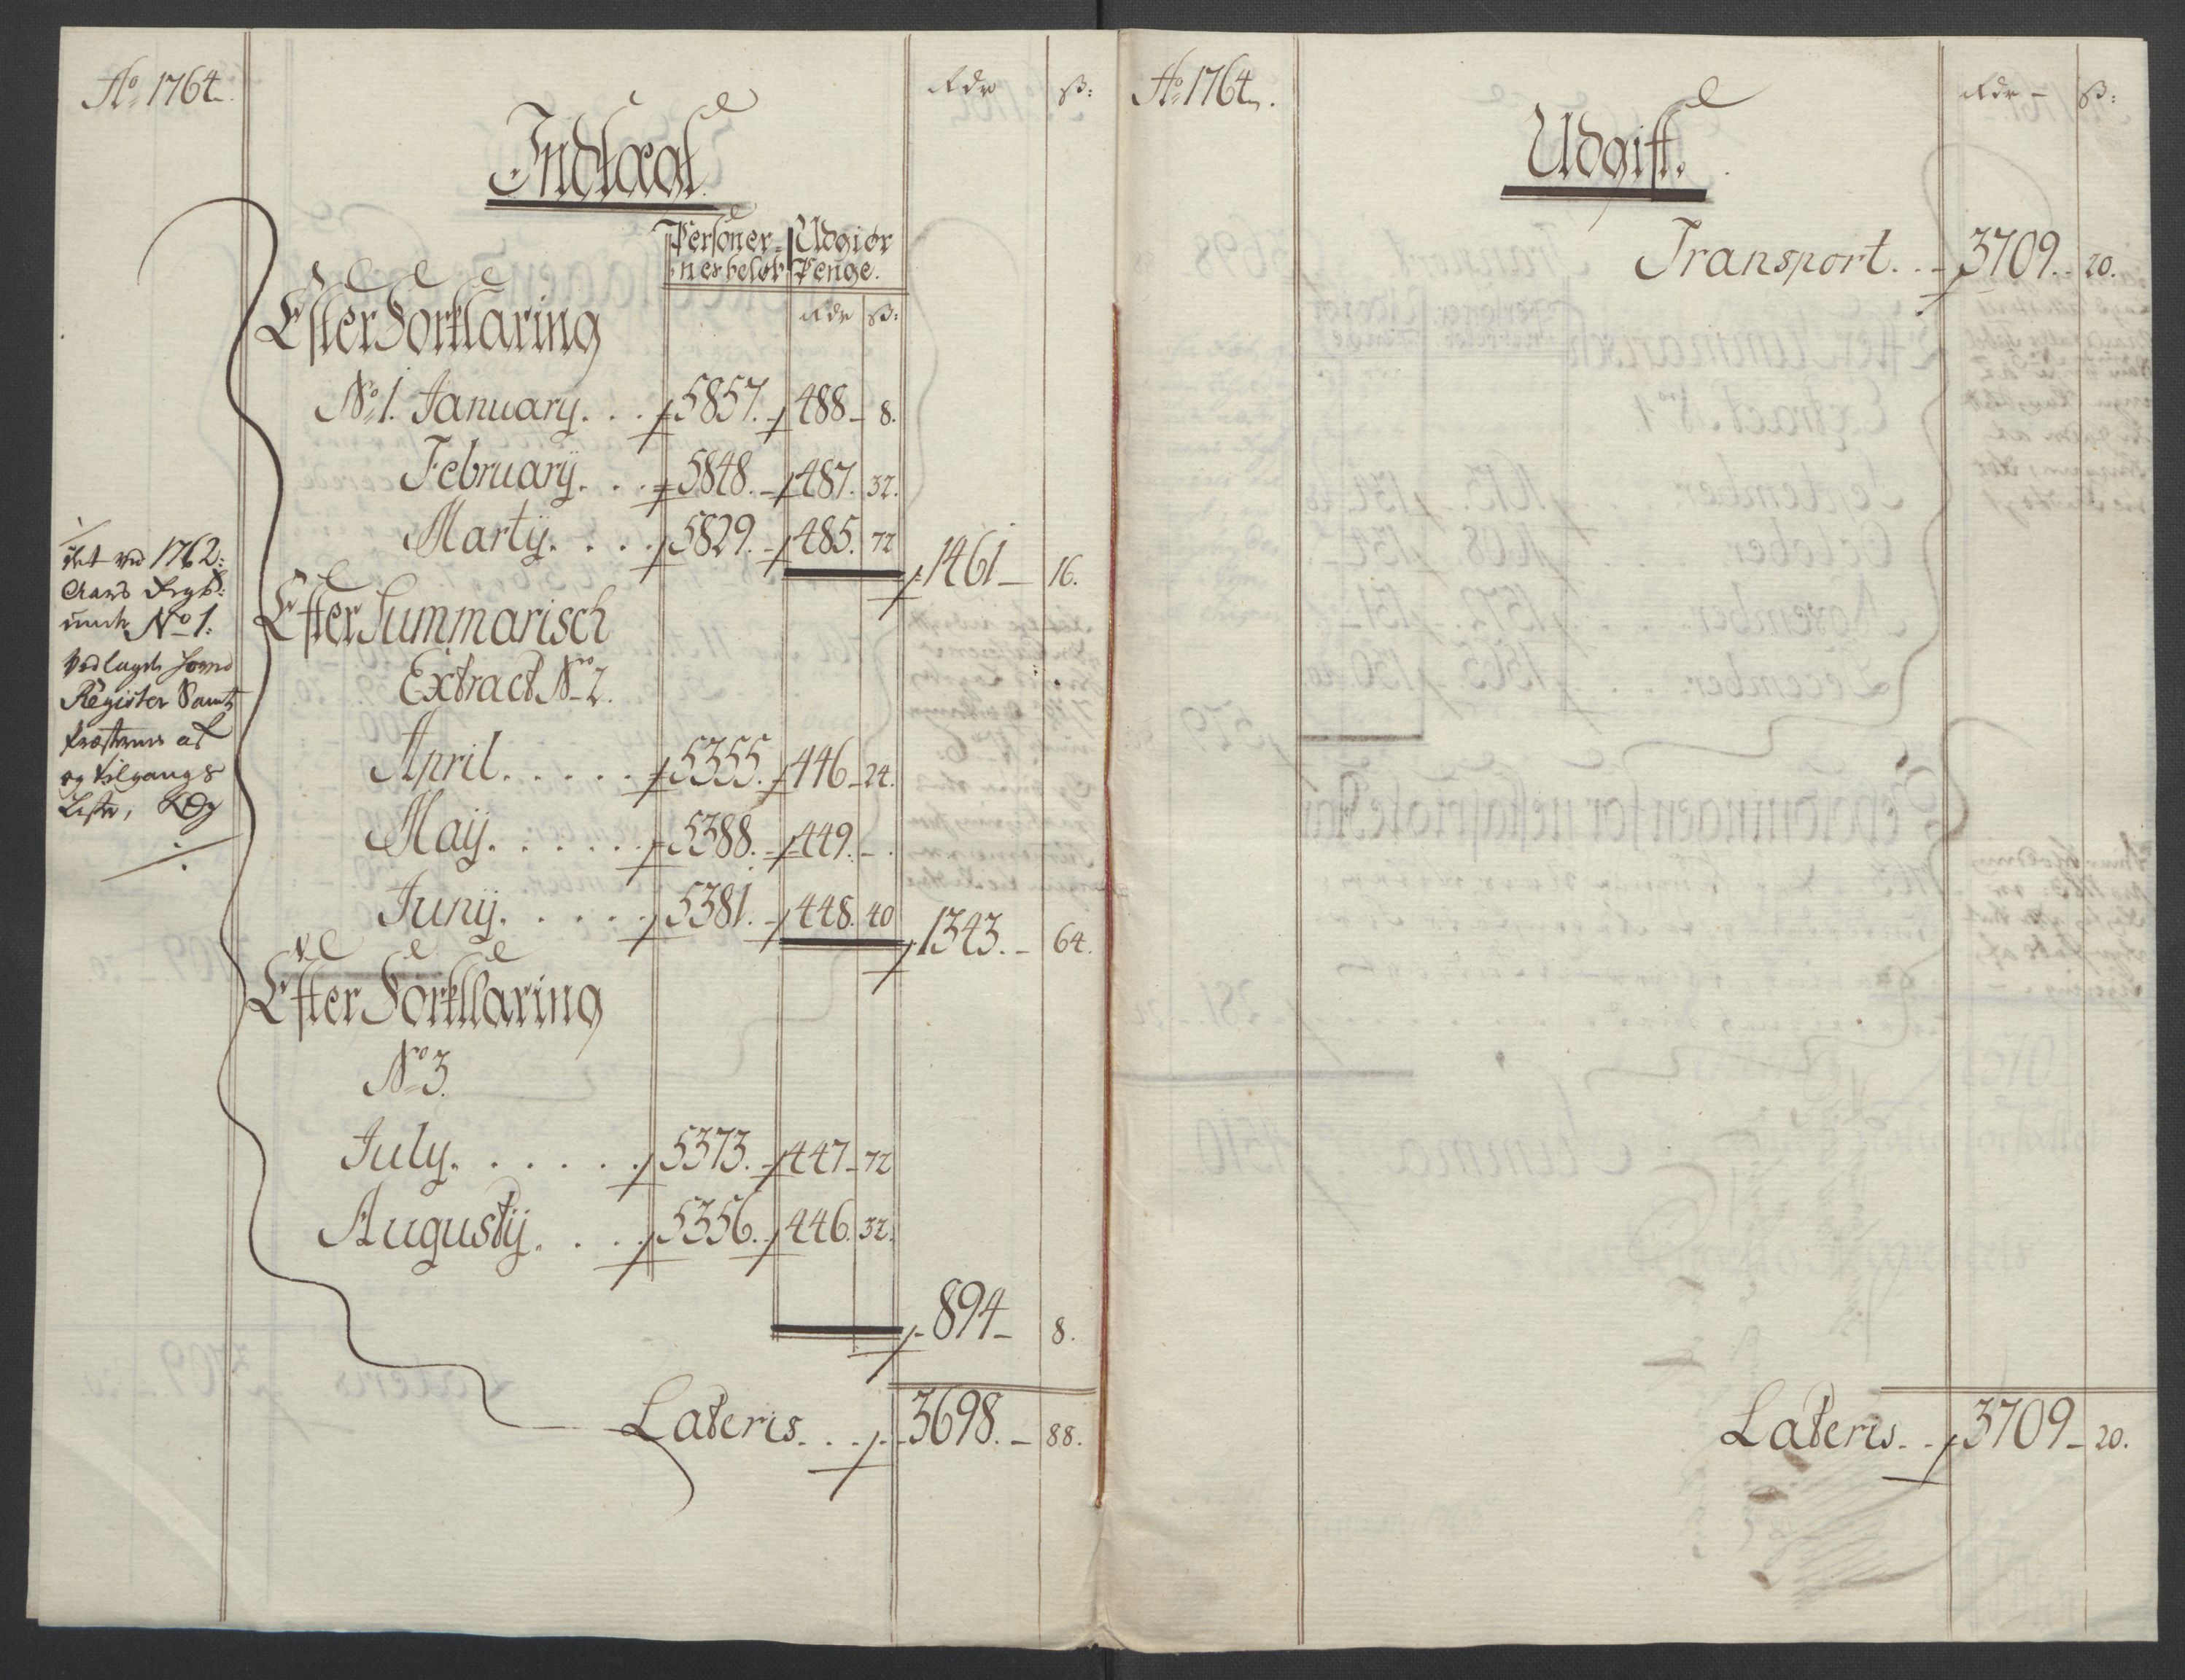 Ao 1764.
Rdr ß:
Indtægt.
Personer- Udgiør
nes beløb Penge.
Rdr ß:
Efter Forklaring
No 1. January. . . 5857. 488 - 8.
February. . . 5848. 487. 32.
Martij. . . . 5829. 485. 72
1461 - 16.
Efter Summarisch
Extract No 2.
April. . . . . 5355. 446 - 24.
Maij. . . . . . 5388. 449. - .
Junij. . . . . 5381. 448. 40
1343. - 64.
Efter Forklaring
No 3.
July. . . . . . 5373. 447 - 72
Augustij. . . . 5356. 446. 32.
894 - 8.
Lateris. . . 3698. - 88.
ved 1762:
Aars
No 1:
Vedlagde
Register Samt
Præsternes af
og tilgangs
Liste,
Ao 1764.
Rdr - ß:
Udgift.
Transport. . . 3709. - 20.
Lateris. . 3709 - 20.